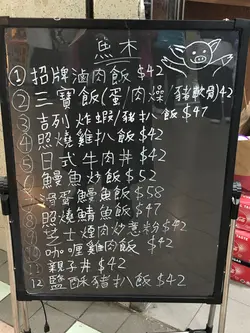 魚木
① 招牌滷肉飯 $42
② 三寶飯(蛋/肉燥/豬軟骨)42
③ 吉列炸蝦/豬扒飯 $47
④ 照燒雞扒飯 $42
⑤ 日式牛肉丼 $42
⑥ 鰻魚炒飯 $52
⑦ 滑蛋鰻魚飯 $58
⑧ 照燒鯖魚飯 $47
⑨ 芝士煙肉炒薏粉 $42
⑩ 咖喱雞肉飯 $42
⑪ 親子丼 $42
12 鹽酥豬扒飯 $42